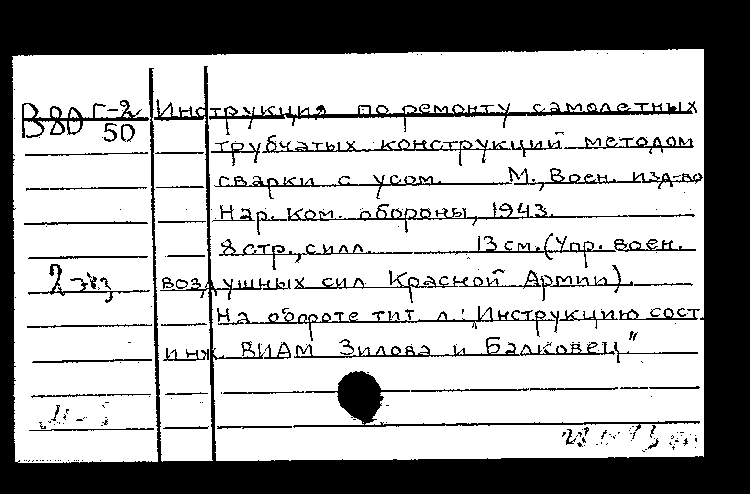 В80 Г-2/50 Инструкция по ремонту самолетных
трубчатых конструкций методом
сварки с усом. М., Воен. изд-во
Нар. ком. обороны, 1943.
8 стр., с илл. 13 см. (Упр. воен.
2 экз воздушных сил Красной Армии).
На обороте тит. л.: „Инструкцию сост.
инж. ВИАМ Зилова и Балковец"